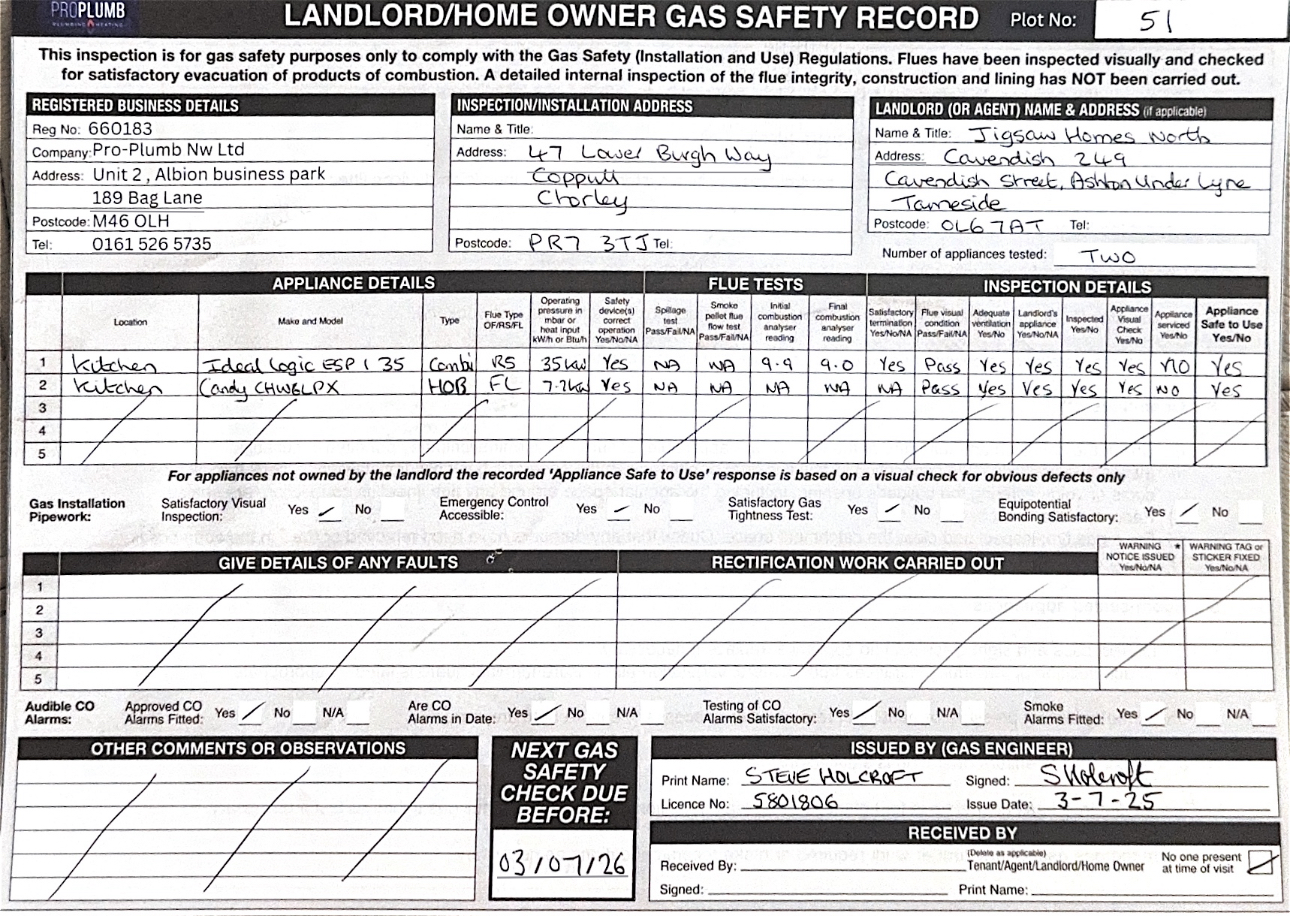 PROPLUMB
PLUMBING & HEATING
LANDLORD/HOME OWNER GAS SAFETY RECORD
Plot No: 51
This inspection is for gas safety purposes only to comply with the Gas Safety (Installation and Use) Regulations. Flues have been inspected visually and checked
for satisfactory evacuation of products of combustion. A detailed internal inspection of the flue integrity, construction and lining has NOT been carried out.
REGISTERED BUSINESS DETAILS
Reg No: 660183
Company: Pro-Plumb Nw Ltd
Address: Unit 2 , Albion business park
189 Bag Lane
Postcode: M46 OLH
Tel: 0161 526 5735
INSPECTION/INSTALLATION ADDRESS
Name & Title:
Address: 47 Lower Burgh Way
Coppull
Chorley
Postcode: PR7 3TJ Tel:
LANDLORD (OR AGENT) NAME & ADDRESS (if applicable)
Name & Title: Jigsaw Homes North
Address: Cavendish 249
Cavendish Street, Ashton Under Lyne
Tameside
Postcode: OL6 7AT Tel:
Number of appliances tested: TWO
APPLIANCE DETAILS FLUE TESTS INSPECTION DETAILS
Location
Make and Model
Type
Flue Type OF/RS/FL
Operating pressure in mbar or heat input kW/h or Btu/h
Safety device(s) correct operation Yes/No/NA
Spillage test Pass/Fail/NA
Smoke pellet flue flow test Pass/Fail/NA
Initial combustion analyser reading
Final combustion analyser reading
Satisfactory termination Yes/No/NA
Flue visual condition Pass/Fail/NA
Adequate ventilation Yes/No
Landlord's appliance Yes/No/NA
Inspected Yes/No
Appliance Visual Check Yes/No
Appliance serviced Yes/No
Appliance Safe to Use Yes/No
1 Kitchen Ideal Logic ESP 1 35 Combi RS 35kw Yes NA NA 9.9 9.0 Yes Pass Yes Yes Yes Yes NO Yes
2 Kitchen Candy CHW6LPX HOB FL 7.2kw Yes NA NA NA NA NA Pass Yes Yes Yes Yes NO Yes
3
4
5
For appliances not owned by the landlord the recorded 'Appliance Safe to Use' response is based on a visual check for obvious defects only
Gas Installation Pipework: Satisfactory Visual Inspection: Yes No Emergency Control Accessible: Yes No Satisfactory Gas Tightness Test: Yes No Equipotential Bonding Satisfactory: Yes No
GIVE DETAILS OF ANY FAULTS RECTIFICATION WORK CARRIED OUT WARNING NOTICE ISSUED Yes/No/NA * WARNING TAG or STICKER FIXED Yes/No/NA
1
2
3
4
5
Audible CO Alarms: Approved CO Alarms Fitted: Yes No N/A Are CO Alarms in Date: Yes No N/A Testing of CO Alarms Satisfactory: Yes No N/A Smoke Alarms Fitted: Yes No N/A
OTHER COMMENTS OR OBSERVATIONS
NEXT GAS
SAFETY
CHECK DUE
BEFORE:
03/07/26
ISSUED BY (GAS ENGINEER)
Print Name: STEVE HOLCROFT Signed: S Holcroft
Licence No: 5801806 Issue Date: 3-7-25
RECEIVED BY
Received By: (Delete as applicable) Tenant/Agent/Landlord/Home Owner
No one present at time of visit
Signed: Print Name: